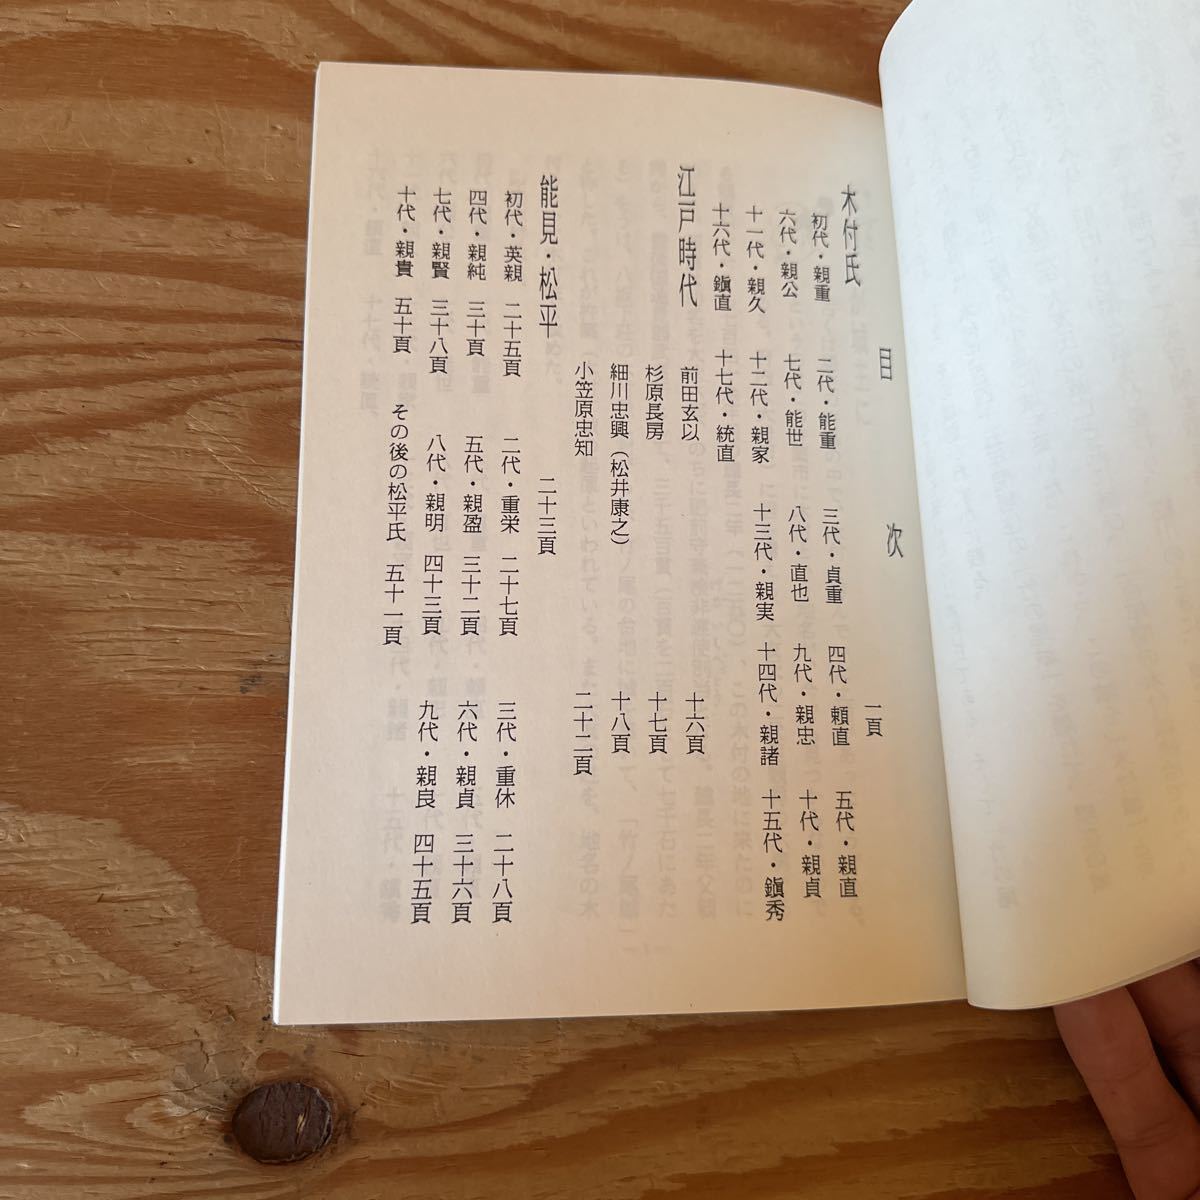 目次
木付氏 一頁
初代・親重 二代・能重 三代・貞重 四代・頼直 五代・親直
六代・親公 七代・能世 八代・直也 九代・親忠 十代・親貞
十一代・親久 十二代・親家 十三代・親実 十四代・親諸 十五代・鎭秀
十六代・鎭直 十七代・統直
江戸時代
前田玄以 十六頁
杉原長房 十七頁
細川忠興（松井康之） 十八頁
小笠原忠知 二十二頁
能見・松平 二十三頁
初代・英親 二十五頁 二代・重栄 二十七頁 三代・重休 二十八頁
四代・親純 三十頁 五代・親盈 三十二頁 六代・親貞 三十六頁
七代・親賢 三十八頁 八代・親明 四十三頁 九代・親良 四十五頁
十代・親貴 五十頁 その後の松平氏 五十一頁